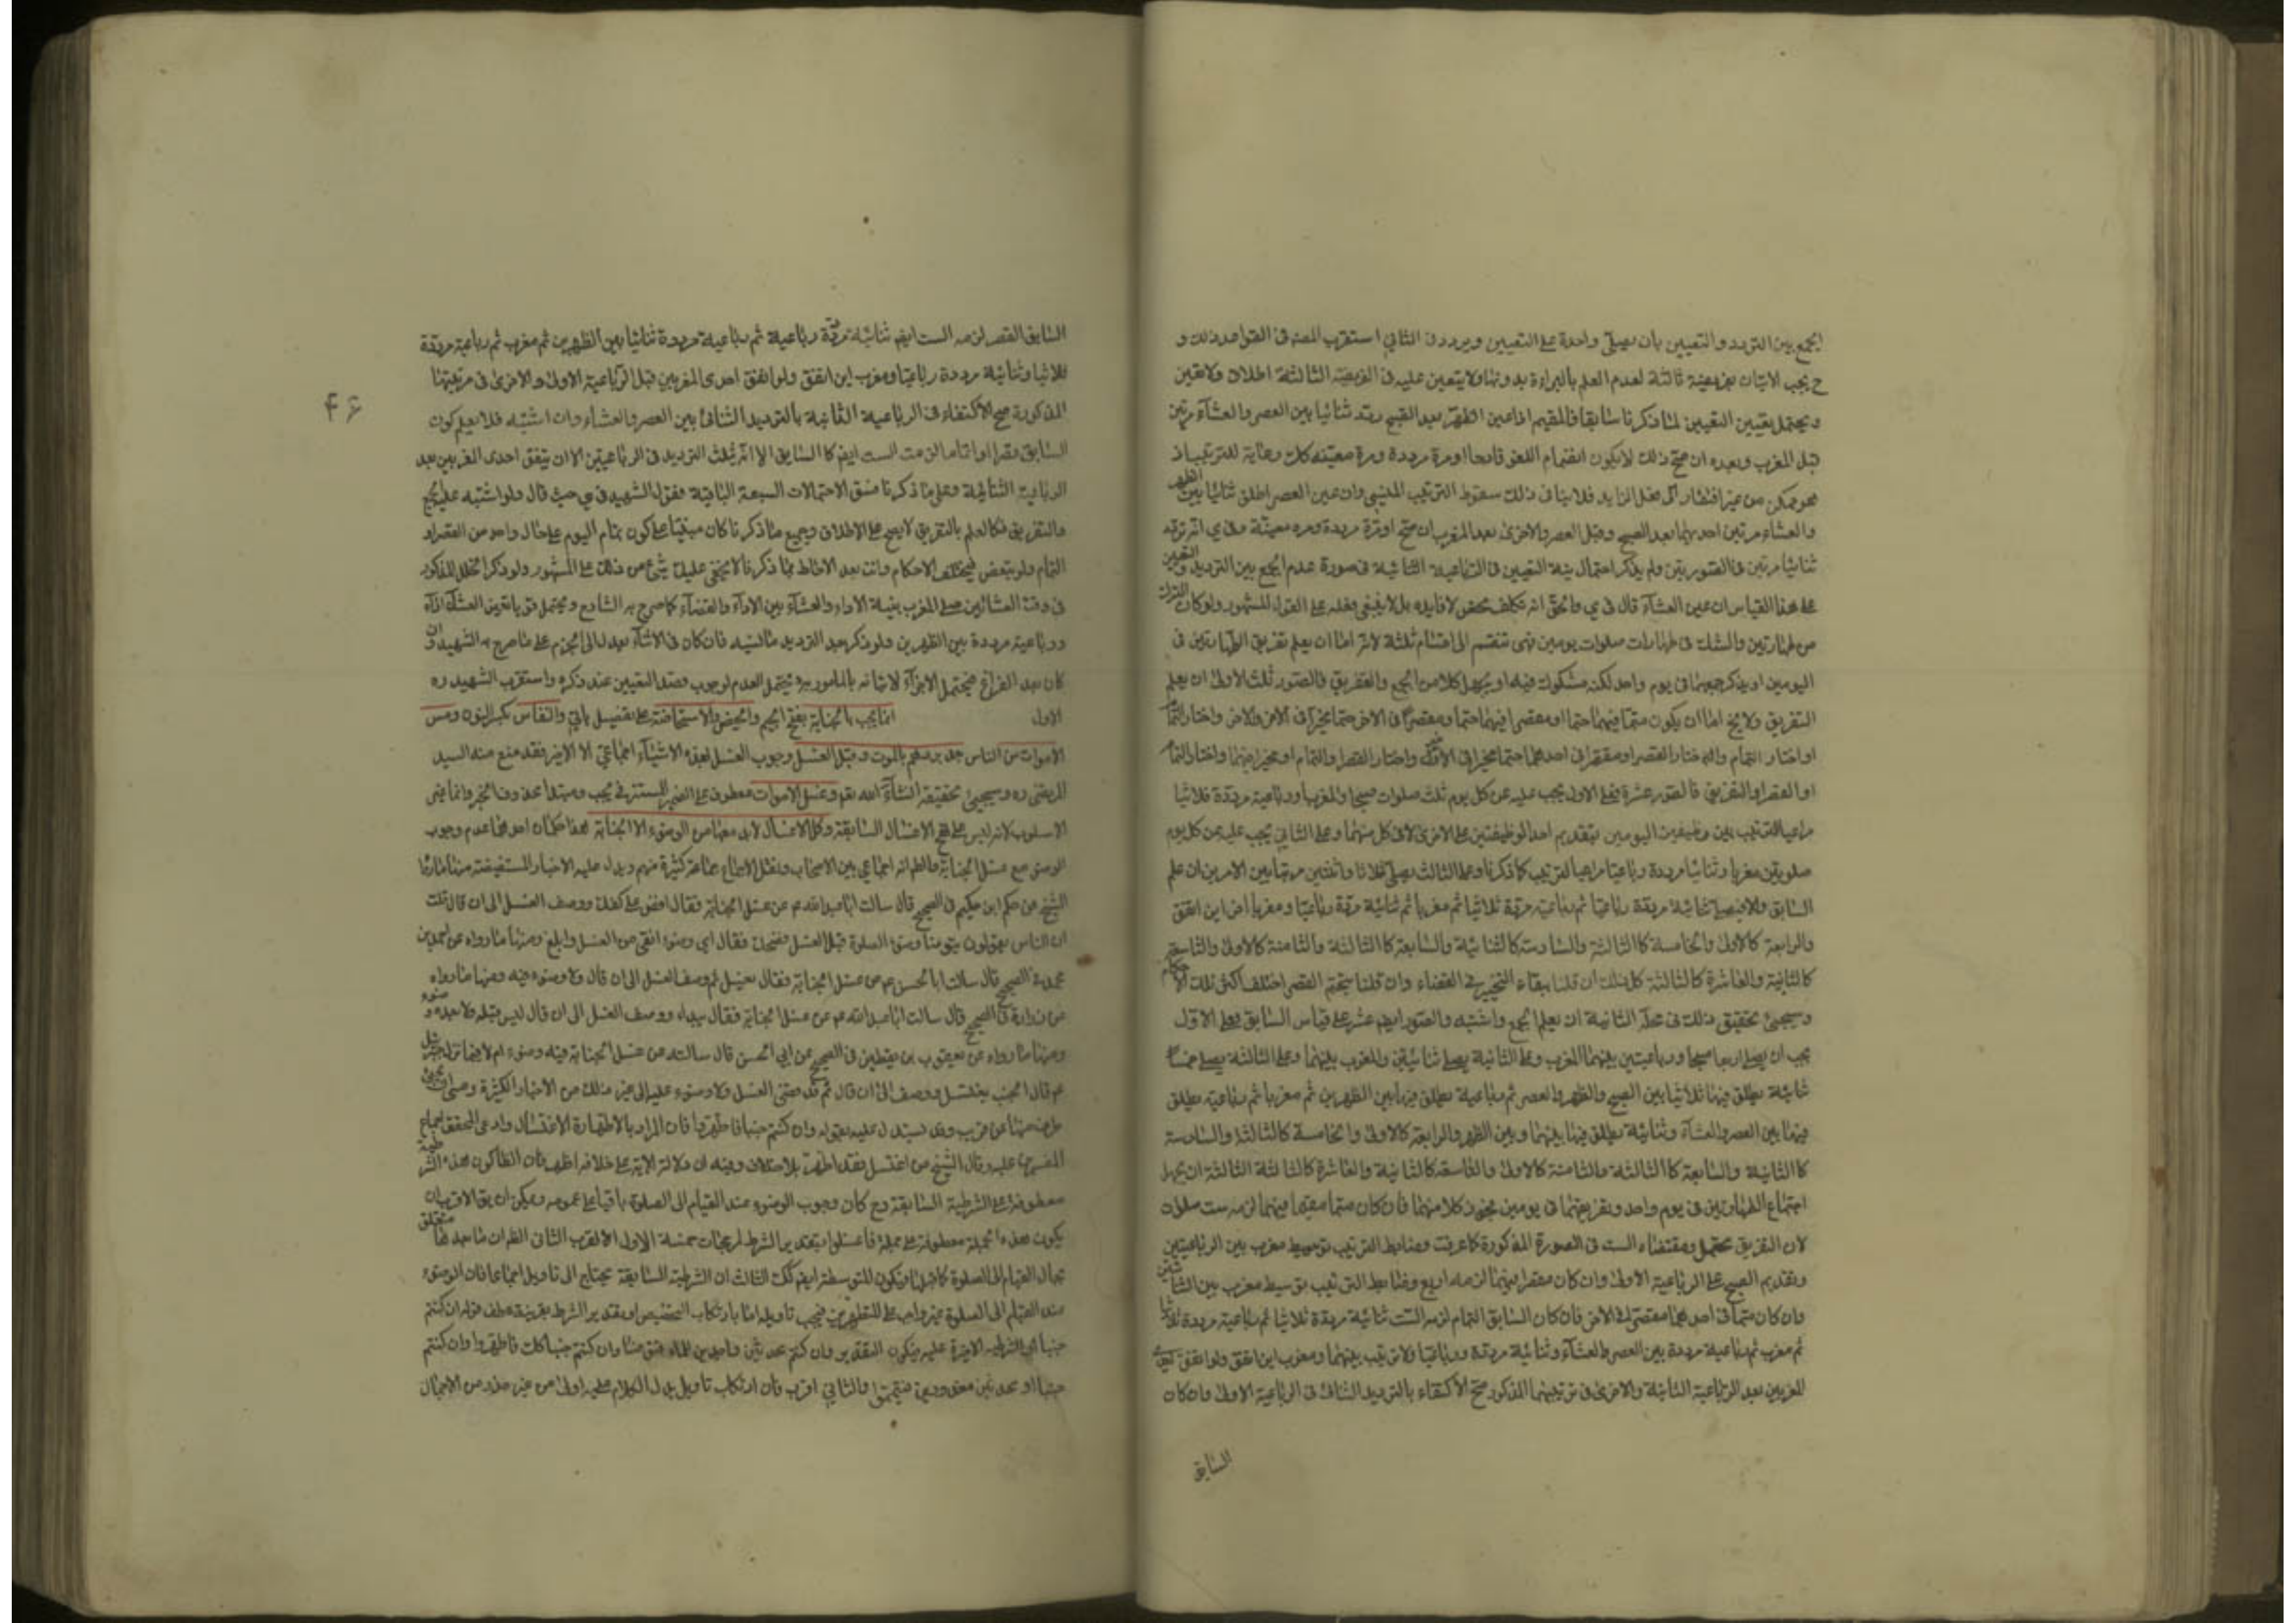 الجمع بين الترديد والتعيين بان يصلى واحدة على التعيين ويردد فى الثانى استقرب المصنف فى القواعد ذلك و
ح يجب الاتيان بفريضة ثالثة لعدم العلم بالبراءة بدونها ولا يتعين عليه فى الفريضة الثالثة اطلاق ولا تعيين
ويحتمل تعيين التعيين لما ذكرنا سابقا فالمقيم اذا عين الظهر بعد الصبح ردد ثنائيا بين العصر والعشاء مرتين
قبل المغرب وبعده ان صح ذلك لا يكون انضمام اللغو قادحا او مرة مرددة ومرة معينة كل رعاية للترتيب اذ
هو ممكن من غير افتقار الى فعل الزايد فلا ينافى ذلك سقوط الترتيب المنسى وان عين العصر اطلق ثنائيا بين الظهر
والعشاء مرتين احديهما بعد الصبح وقبل العصر والاخرى بعد المغرب ان صح او مرة مرددة ومرة معينة وفى ى انه تردد
ثنائيا مرتين فى الصورتين ولم يذكر احتمال نية التعيين فى الرباعية الثانية فى صورة عدم الجمع بين الترديد والتعيين
على هذا القياس ان عين العشاء قال فى ى والحق انه تكلف محض لا فايدة بل لا ينبغى فعله على القول المشهور ولو كان الترك
من طهارتين والشك فى طهارات صلوات يومين فهى تنقسم الى اقسام ثلثة لانه اما ان يعلم تفريق الطهارتين فى
اليومين او يذكر جمعهما فى يوم واحد لكنه مشكوك فيه او يجهل كلا من الجمع والتفريق فالصور ثلث الاولى ان يعلم
التفريق ولا يخ اما ان يكون متما فيهما حتما او مقصرا فيهما حتما ومقصرا فى الاخر حتما مخيرا فى الاخر والاخر واختار التمام
او اختار التمام واختار القصر او مقصرا فى احدهما حتما مخيرا فى الاخر واختار القصر او التمام او مخيرا فيهما واختار التمام
او القصر او التفريق فالصور عشرة فعلى الاول يجب عليه عن كل يوم ثلث صلوات صبحا ومغربا ورباعية مرددة ثلاثيا
مراعيا للترتيب بين وظيفتى اليومين بتقديم احد الوظيفتين على الاخرى لا فى كل منهما وعلى الثانى يجب عليه عن كل يوم
صلوتين مغربا وثنائيا مرددة رباعيا مراعيا للترتيب كما ذكرنا وعلى الثالث يصلى ثلاثا واثنتين مرتبا بين الامرين ان علم
السابق والا فيصلى ثنائية مرددة رباعيا ثم رباعية مرددة ثلاثيا ثم مغربا ثم ثنائية مرددة رباعيا ومغربا اخر اين اتفق
والرابعة كالاولى والخامسة كالثالثة والسادسة كالثانية والسابعة كالثالثة والثامنة كالاولى والتاسعة
كالثانية والعاشرة كالثالثة كل ذلك ان قلنا ببقاء التخيير فى القضاء وان قلنا بتحتم القصر اختلف اكثر تلك الاحكام
وسيجئ تحقيق ذلك فى محله الثانية ان يعلم الجمع واشتبه والصور ايضا عشر على قياس السابق فعلى الاول
يجب ان يصلى اربعا صبحا ورباعيتين بينهما المغرب وعلى الثانية يصلى ثنائيتين والمغرب بينهما وعلى الثالثة يصلى خمسا
ثنائية يطلق فيها ثلاثيا بين الصبح والظهر والعصر ثم رباعية يطلق فيها بين الظهرين ثم مغربا ثم رباعية يطلق
فيها بين العصر والعشاء وثنائية يطلق فيها بينهما وبين الظهر والرابعة كالاولى والخامسة كالثالثة والسادسة
كالثانية والسابعة كالثالثة والثامنة كالاولى والتاسعة كالثانية والعاشرة كالثالثة الثالثة ان يجهل
اجتماع الطهارتين فى يوم واحد وتفريقهما فى يومين مجوز كلا منهما فان كان متما مقيما فيهما لزمه ست صلوات
لان التفريق محتمل ومقتضاه الست فى الصورة المذكورة كما عرفت وضابط الترتيب توسيط مغرب بين الرباعيتين
وتقديم الصبح على الرباعية الاولى وان كان مقصرا فيهما لزمه اربع وضابط الترتيب توسيط مغرب بين الثنائيتين
وان كان متما فى احدهما مقصرا فى الاخر فان كان السابق التمام لزمه الست ثنائية مرددة ثلاثيا ثم رباعية مرددة ثلاثيا
ثم مغرب ثم رباعية مرددة بين العصر والعشاء وثنائية مرددة رباعيا ولا ترتيب بينهما ومغرب اين اتفق ولو اتفق احدى
المغربين بعد الرباعية الثانية والاخرى فى ترتيبهما المذكور صح الاكتفاء بالترديد الثنائى فى الرباعية الاولى وان كان
السابق
السابق القصر لزمه الست ايضا ثنائية مرددة رباعية ثم رباعية مرددة ثنائيا بين الظهرين ثم مغرب ثم رباعية مرددة
ثلاثيا وثنائية مرددة رباعيا ومغرب اين اتفق ولو اتفق احدى المغربين قبل الرباعية الاولى والاخرى فى مرتبتهما
المذكورة صح الاكتفاء فى الرباعية الثانية بالترديد الثنائى بين العصر والعشاء وان اشتبه فلا يعلم كون
السابق قصرا او تماما لزمه الست ايضا كالسابق الا انه يثلث الترديد فى الرباعيتين الا ان يتفق احدى المغربين بعد
الرباعية الثنائية وعلى ما ذكرنا فسق الاحتمالات السبعة الباقية فقول الشهيد فى ى حيث قال ولو اشتبه عليه الجمع
والتفريق فكالعلم بالتفريق لا يصح على الاطلاق وجميع ما ذكرنا كان مبنيا على كون تمام اليوم على حال واحد من القصر او
التمام ولو تبعض فيختلف الاحكام وانت بعد الاحاطة بما ذكرنا لا يخفى عليك شئ من ذلك على المشهور ولو ذكر الخلل المذكور
فى وقت العشائين صلى المغرب بنية الاداء والعشاء بين الاداء والقضاء كما صرح به الشارع ويحتمل تعيين العشاء اداء
ورباعية مرددة بين الظهرين ولو ذكر بعد الترديد ما نسيه فان كان فى الاثناء يعدل الى الجزم على ما صرح به الشهيد وان
كان بعد الفراغ فيحتمل الاجزاء لاتيانه بالمامور به ويحتمل العدم لوجوب قصد التعيين عند ذكره واستقرب الشهيد ره
الاول انما يجب بالجنابة بفتح الجيم والحيض والاستحاضة على تفصيل ياتى والنفاس بكسر النون ومس
الاموات من الناس بعد بردهم بالموت وقبل الغسل وجوب الغسل لهذه الاشياء اجماعى الا الاخير فقد منع منه السيد
المرتضى ره وسيجئ تحقيقه انشاء الله تعالى وغسل الاموات معطوف على الضمير المستتر فى يجب ومبتدا محذوف الخبر وانما غير
الاسلوب لانه ليس على نهج الاغسال السابقة وكل الاغسال لابد معها من الوضوء الا الجنابة هنا حكمان احدهما عدم وجوب
الوضوء مع غسل الجنابة والظاهر انه اجماعى بين الاصحاب ونقل الاجماع جماعة كثيرة منهم ويدل عليه الاخبار المستفيضة منها ما رواه
الشيخ عن حكم ابن حكيم فى الصحيح قال سالت ابا عبد الله ع عن غسل الجنابة فقال افض على كفك ووصف الغسل الى ان قال قلت
ان الناس يقولون يتوضأ وضوء الصلوة قبل الغسل فضحك فقال اى وضوء انقى من الغسل وابلغ ومنها ما رواه عن احمد بن
محمد فى الصحيح قال سالت ابا الحسن ع عن غسل الجنابة فقال يغسل ثم وصف الغسل الى ان قال ولا وضوء فيه ومنها ما رواه
عن زرارة فى الصحيح قال سالت ابا عبد الله ع عن غسل الجنابة فقال يبداء ووصف الغسل الى ان قال ليس قبله ولا بعده وضوء
ومنها ما رواه عن يعقوب بن يقطين فى الصحيح عن ابى الحسن قال سالته عن غسل الجنابة فيه وضوء ام لا فيما نزل جبرئيل
ع قال الجنب يغتسل ووصف الى ان قال ثم قد مضى الغسل ولا وضوء عليه الى غير ذلك من الاخبار الكثيرة
طرف منها عن قريب وقد يستدل عليه بقوله وان كنتم جنبا فاطهروا فان المراد بالاطهارة الاغتسال وادعى المحقق اجماع
المفسرين عليه وقال الشيخ من اغتسل فقد اطهر بلا خلاف وفيه ان دلالة الاية على خلافه اظهر فان الظاهر كون هذه الشرطية
معطوفة على الشرطية السابقة وح كان وجوب الوضوء عند القيام الى الصلوة باقيا على عمومه ويمكن ان يق الاقرب ان
يكون هذه الجملة معطوفة على جملة فاغسلوا بتقدير الشرط لرجحات خمسة الاول الاقرب الثانى الظاهر ان ما بعدها متعلق
بحال القيام الى الصلوة كما قبلها فيكون المتوسطة ايضا كك الثالث ان الشرطية السابقة يحتاج الى تاويل اجماعا فان الوضوء
عند القيام الى الصلوة غير واجب على المتطهرين فيجب تاويله اما بارتكاب التخصيص او بتقدير الشرط بقرينة عطف قوله ان كنتم
جنبا اى الشرطية الاخيرة عليه فيكون التقدير وان كنتم محدثين واجدين للماء فتوضئوا وان كنتم جنبا كك فاطهروا وان كنتم
جنبا او محدثين معذورين فتيمموا والثانى اقرب فان ارتكاب تاويل يدل الكلام عليه اولى من غيره حذرا من الاجمال
۴۶